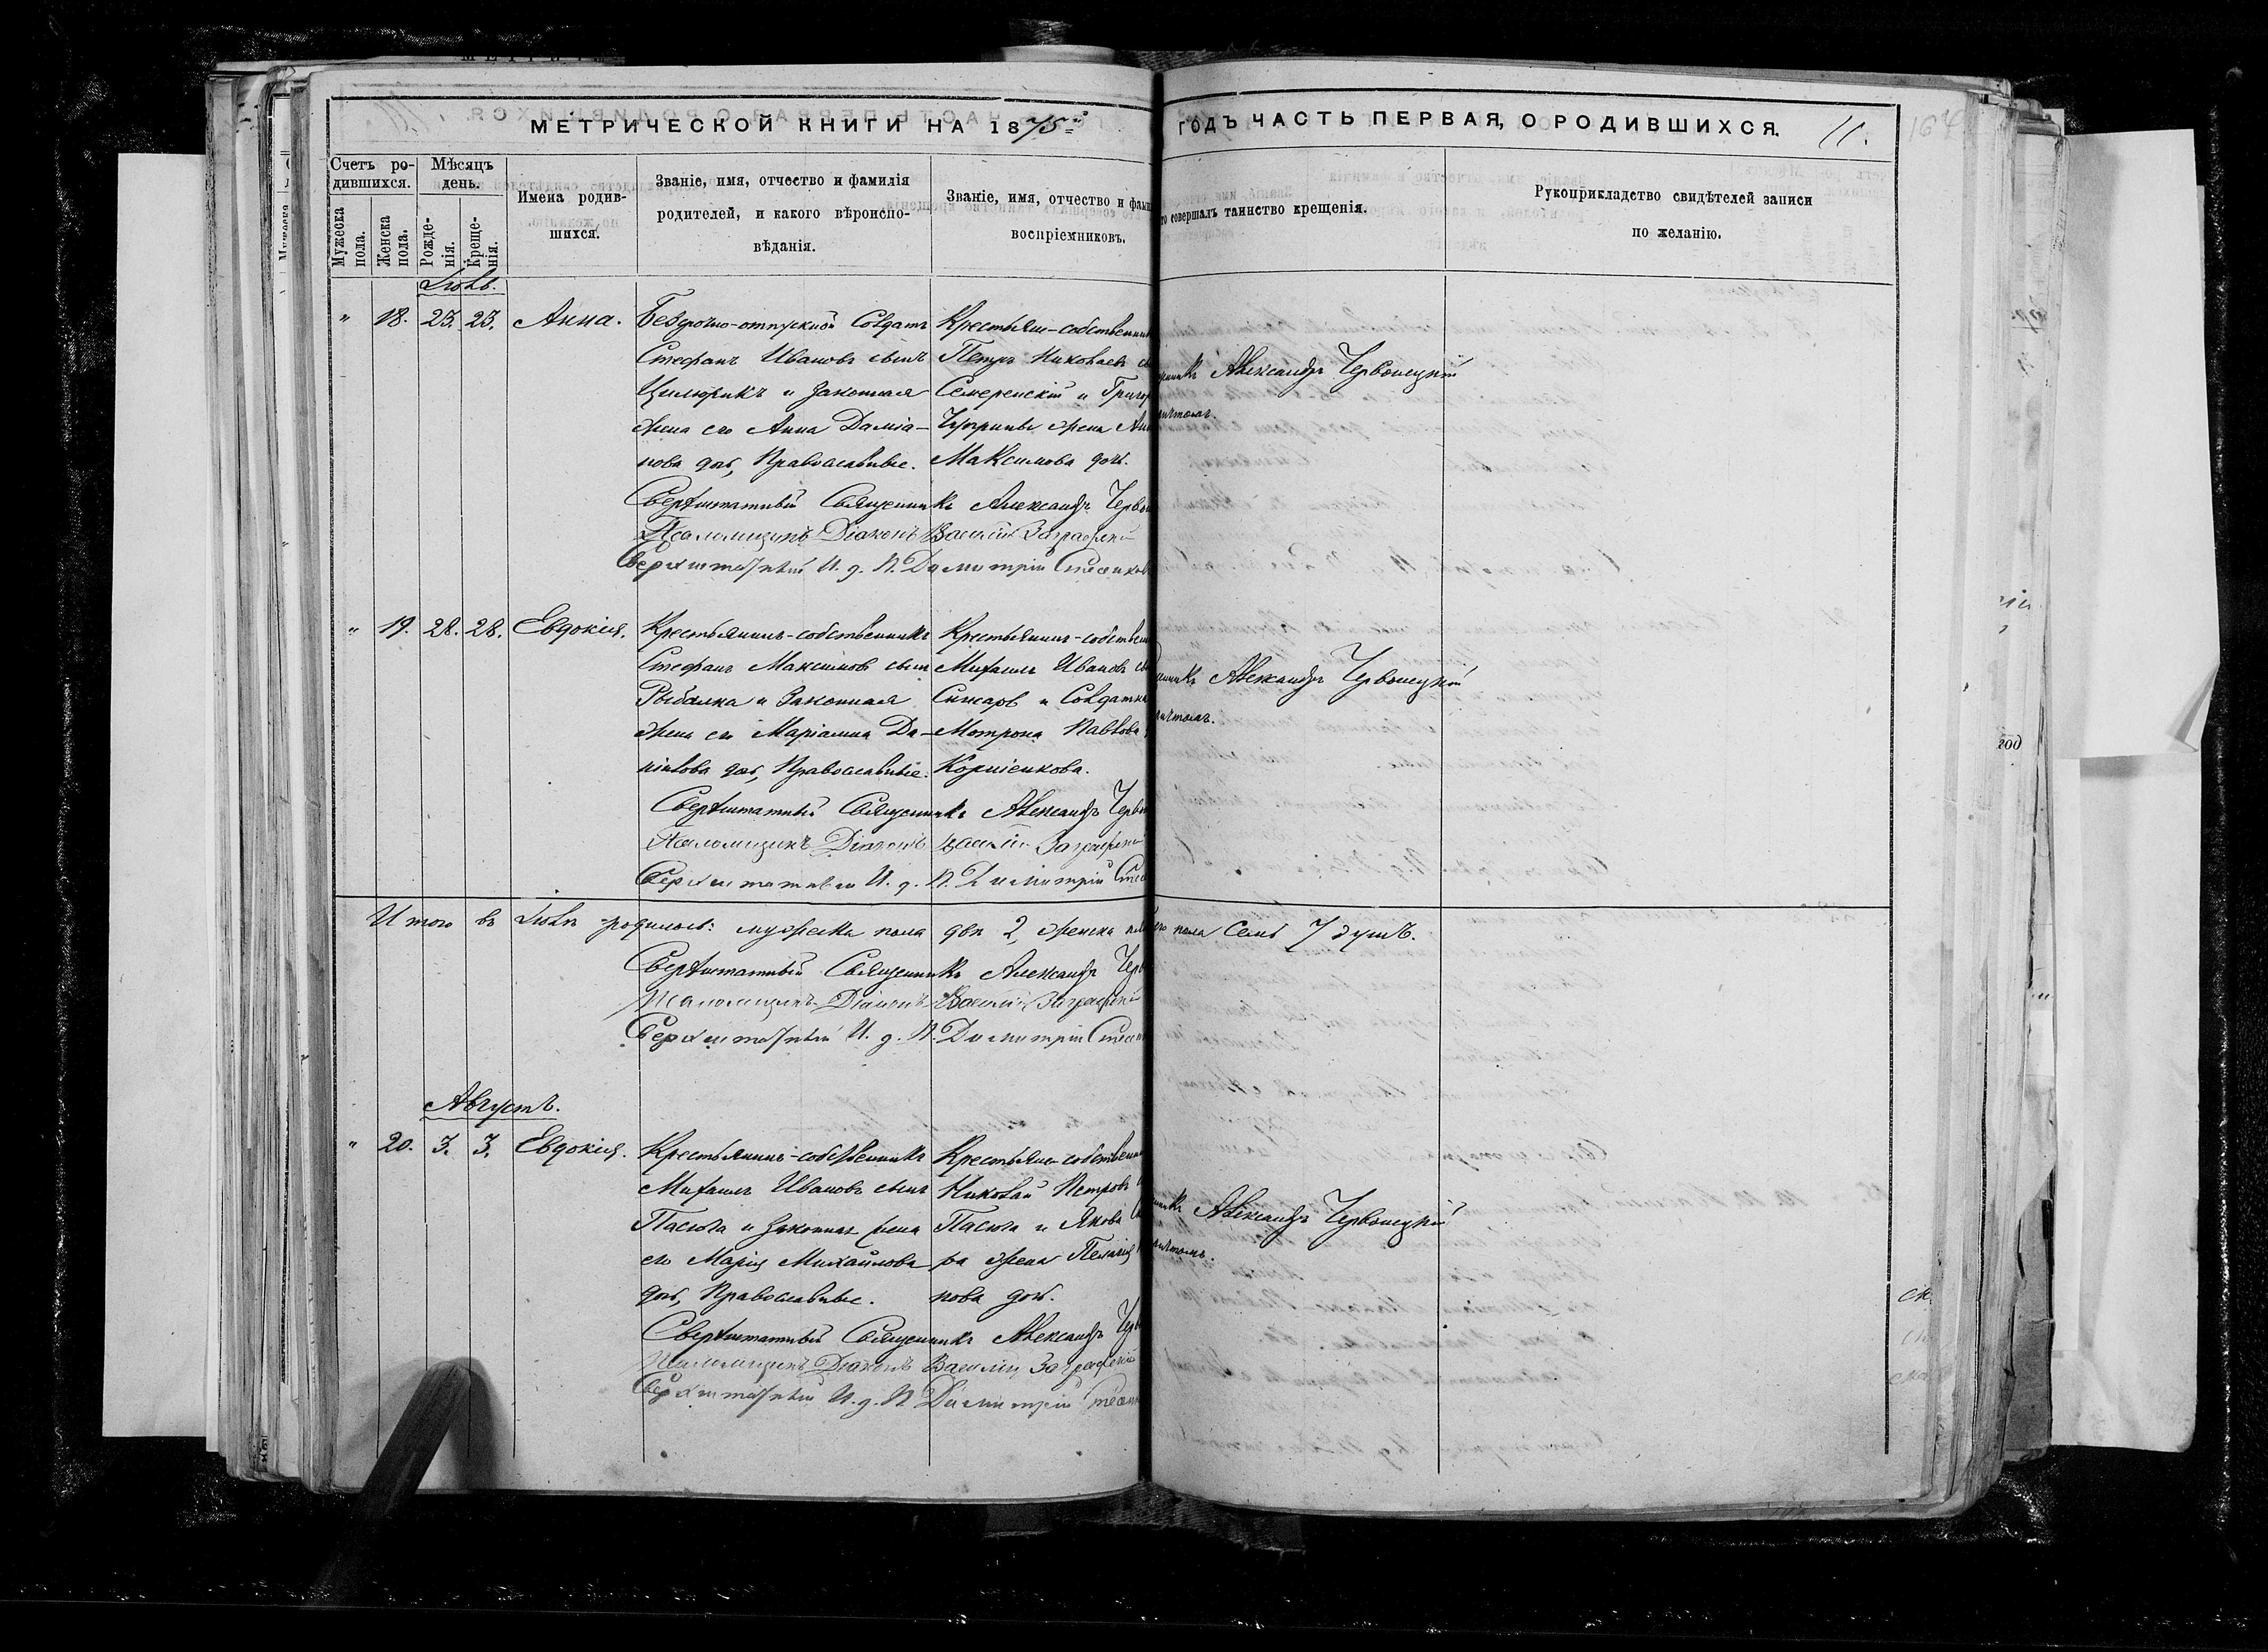 МЕТРИЧЕСКОЙ КНИГИ НА 1875й ГОДЪ ЧАСТЬ ПЕРВАЯ, О РОДИВШИХСЯ. 11. 164
Счетъ ро-
дившихся.
Мужеска пола.
Женска пола.
Мѣсяцъ
день.
Рожде-
нія.
Креще-
нія.
Имена родив-
шихся.
Званіе, имя, отчество и фамилія
родителей, и какого вѣроиспо-
вѣданія.
Званіе, имя, отчество и фами
воспріемниковъ.
то совершалъ таинство крещенія.
Рукоприкладство свидѣтелей записи
по желанію.
Іюль.
" 18. 23. 23. Анна.
Безсрочно-отпускной Солдатъ
Стефанъ Ивановъ сынъ
Цилюрикъ и законная
жена его Анна Даміа-
нова дочь, Православные.
Крестьяне-собственник
Петръ Николаевъ
и Григор
Чуприны жена Ан
Максимова дочь.
нникъ Александръ Червонецкій
Сверхштатный Священникъ Александръ Черво
Псаломщикъ Діаконъ Василій
Сверхштатный И. д. П. Димитрій
" 19. 28. 28. Евдокія.
Крестьянинъ-собственникъ
Стефанъ Максимовъ сынъ
Рыбалка и законная
жена его Маріамна Да-
ніилова дочь, Православные.
Крестьянинъ-собствен
Михаилъ Ивановъ сы
и Солдатка
Мотрона Павлова
Корніенкова.
нникъ Александръ Червонецкій
Сверхштатный Священникъ Александръ Черво
Псаломщикъ Діаконъ Василій
Сверхштатный И. д. П. Димитрій
Итого въ Іюлѣ родилось: мужеска пола два 2, женска его пола семь 7 душъ.
Сверхштатный Священникъ Александръ Чер
Псаломщикъ Діаконъ Василій
Сверхштатный И. д. П. Димитрій
Августъ.
" 20. 3. 3. Евдокія.
Крестьянинъ-собственникъ
Михаилъ Ивановъ сынъ
Пасюга и законная жена
его Марія Михайлова
дочь, Православные.
Крестьяне-собственн
Николай Петровъ
Пасюга и Якова
ра жена Пелагія
нова дочь.
нникъ Александръ Червонецкій
Сверхштатный Священникъ Александръ Чер
Псаломщикъ Діаконъ Василій
Сверхштатный И. д. П. Димитрій